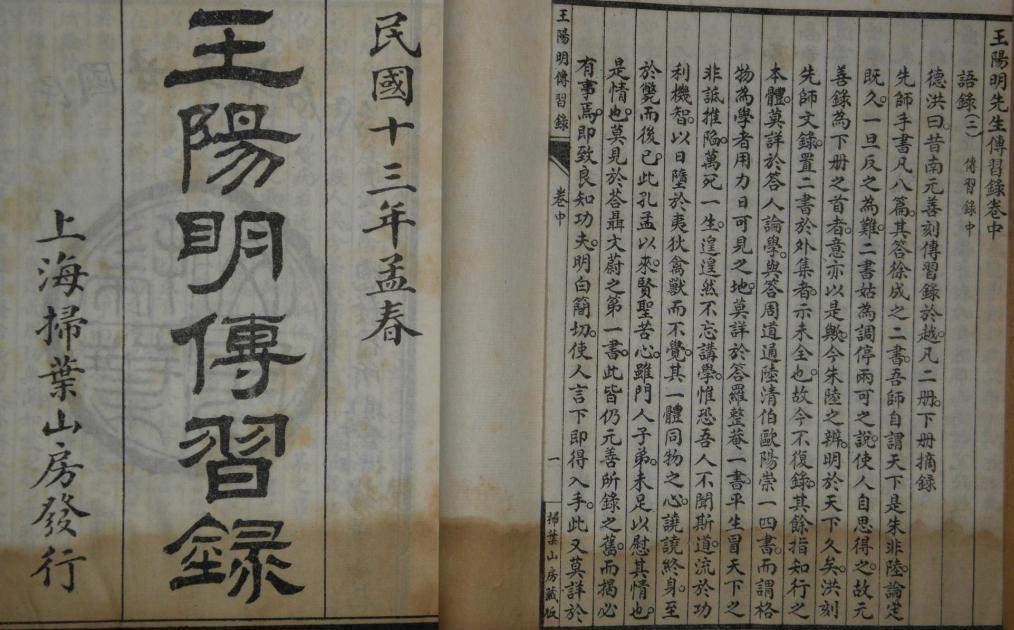 民國十三年孟春
王陽明傳習錄
上海掃葉山房發行
王陽明先生傳習錄卷中
語錄(二) 傳習錄中
德洪曰。昔南元善刻傳習錄於越。凡二冊。下冊摘錄
先師手書凡八篇。其答徐成之二書。吾師自謂天下是朱非陸。論定
既久。一旦反之為難。二書姑為調停兩可之說。使人自思得之。故元
善錄為下冊之首者。意亦以是歟。今朱陸之辨明於天下久矣。洪刻
先師文錄。置二書於外集者。示未全也。故今不復錄。其餘指知行之
本體。莫詳於答人論學。與答周道通陸清伯歐陽崇一四書。而謂格
物為學者用力日可見之地。莫詳於答羅整菴一書。平生冒天下之
非詆推陷。萬死一生。遑遑然不忘講學。惟恐吾人不聞斯道。流於功
利機智。以日墮於夷狄禽獸而不覺。其一體同物之心。譊譊終身。至
於斃而後已。此孔孟以來賢聖苦心。雖門人子弟。未足以慰其情也。
是情也。莫見於答聶文蔚之第一書。此皆仍元善所錄之舊。而揭必
有事焉。即致良知功夫。明白簡切。使人言下即得入手。此又莫詳於
王陽明傳習錄 卷中 一 掃葉山房藏版